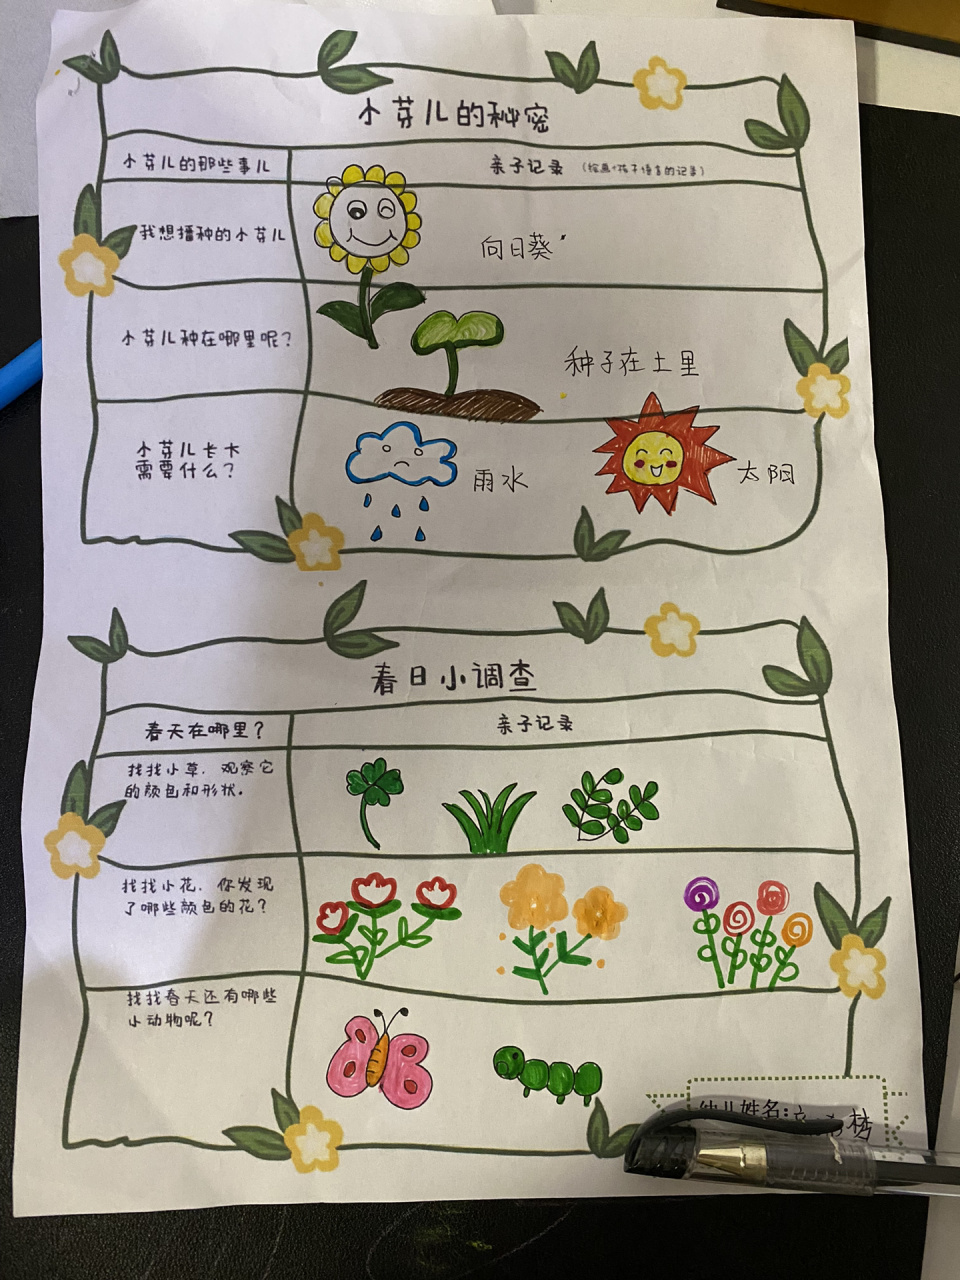 小芽儿的秘密
小芽儿的那些事儿
亲子记录 (绘画+孩子语言的记录)
我想播种的小芽儿
向日葵
小芽儿种在哪里呢?
种子在土里
小芽儿长大
需要什么?
雨水
太阳
春日小调查
春天在哪里?
亲子记录
找找小草,观察它
的颜色和形状。
找找小花,你发现
了哪些颜色的花?
找找春天还有哪些
小动物呢?
幼儿姓名: